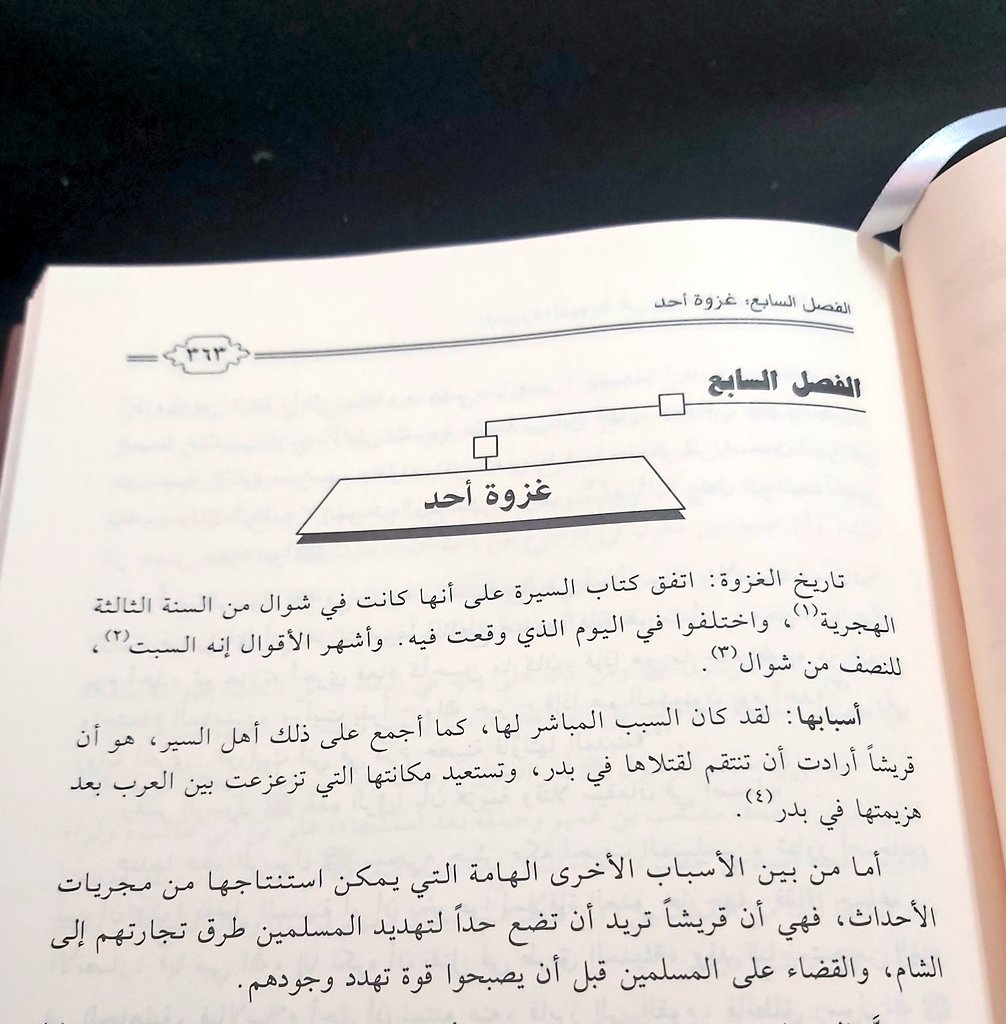 الفصل السابع: غزوة أحد
٣٦٣
الفصل السابع
غزوة أحد
تاريخ الغزوة: اتفق كتاب السيرة على أنها كانت في شوال من السنة الثالثة
الهجرية(١)، واختلفوا في اليوم الذي وقعت فيه. وأشهر الأقوال إنه السبت(٢)،
للنصف من شوال(٣).
أسبابها: لقد كان السبب المباشر لها، كما أجمع على ذلك أهل السير، هو أن
قريشاً أرادت أن تنتقم لقتلاها في بدر، وتستعيد مكانتها التي تزعزعت بين العرب بعد
هزيمتها في بدر(٤).
أما من بين الأسباب الأخرى الهامة التي يمكن استنتاجها من مجريات
الأحداث، فهي أن قريشاً تريد أن تضع حداً لتهديد المسلمين طرق تجارتهم إلى
الشام، والقضاء على المسلمين قبل أن يصبحوا قوة تهدد وجودهم.